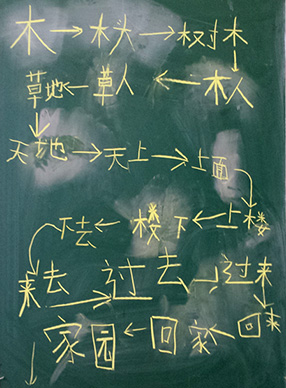 木→木头→树木
草地←草人←木人
天地→天上→上面
下去←楼下←上楼
来去→过去→过来
家园←回家←回来